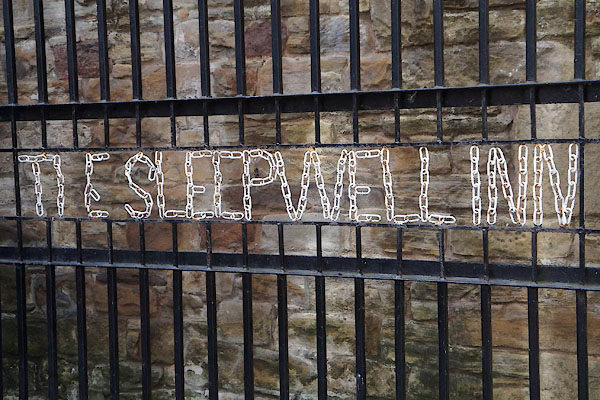 THE SLEEPWELL INN